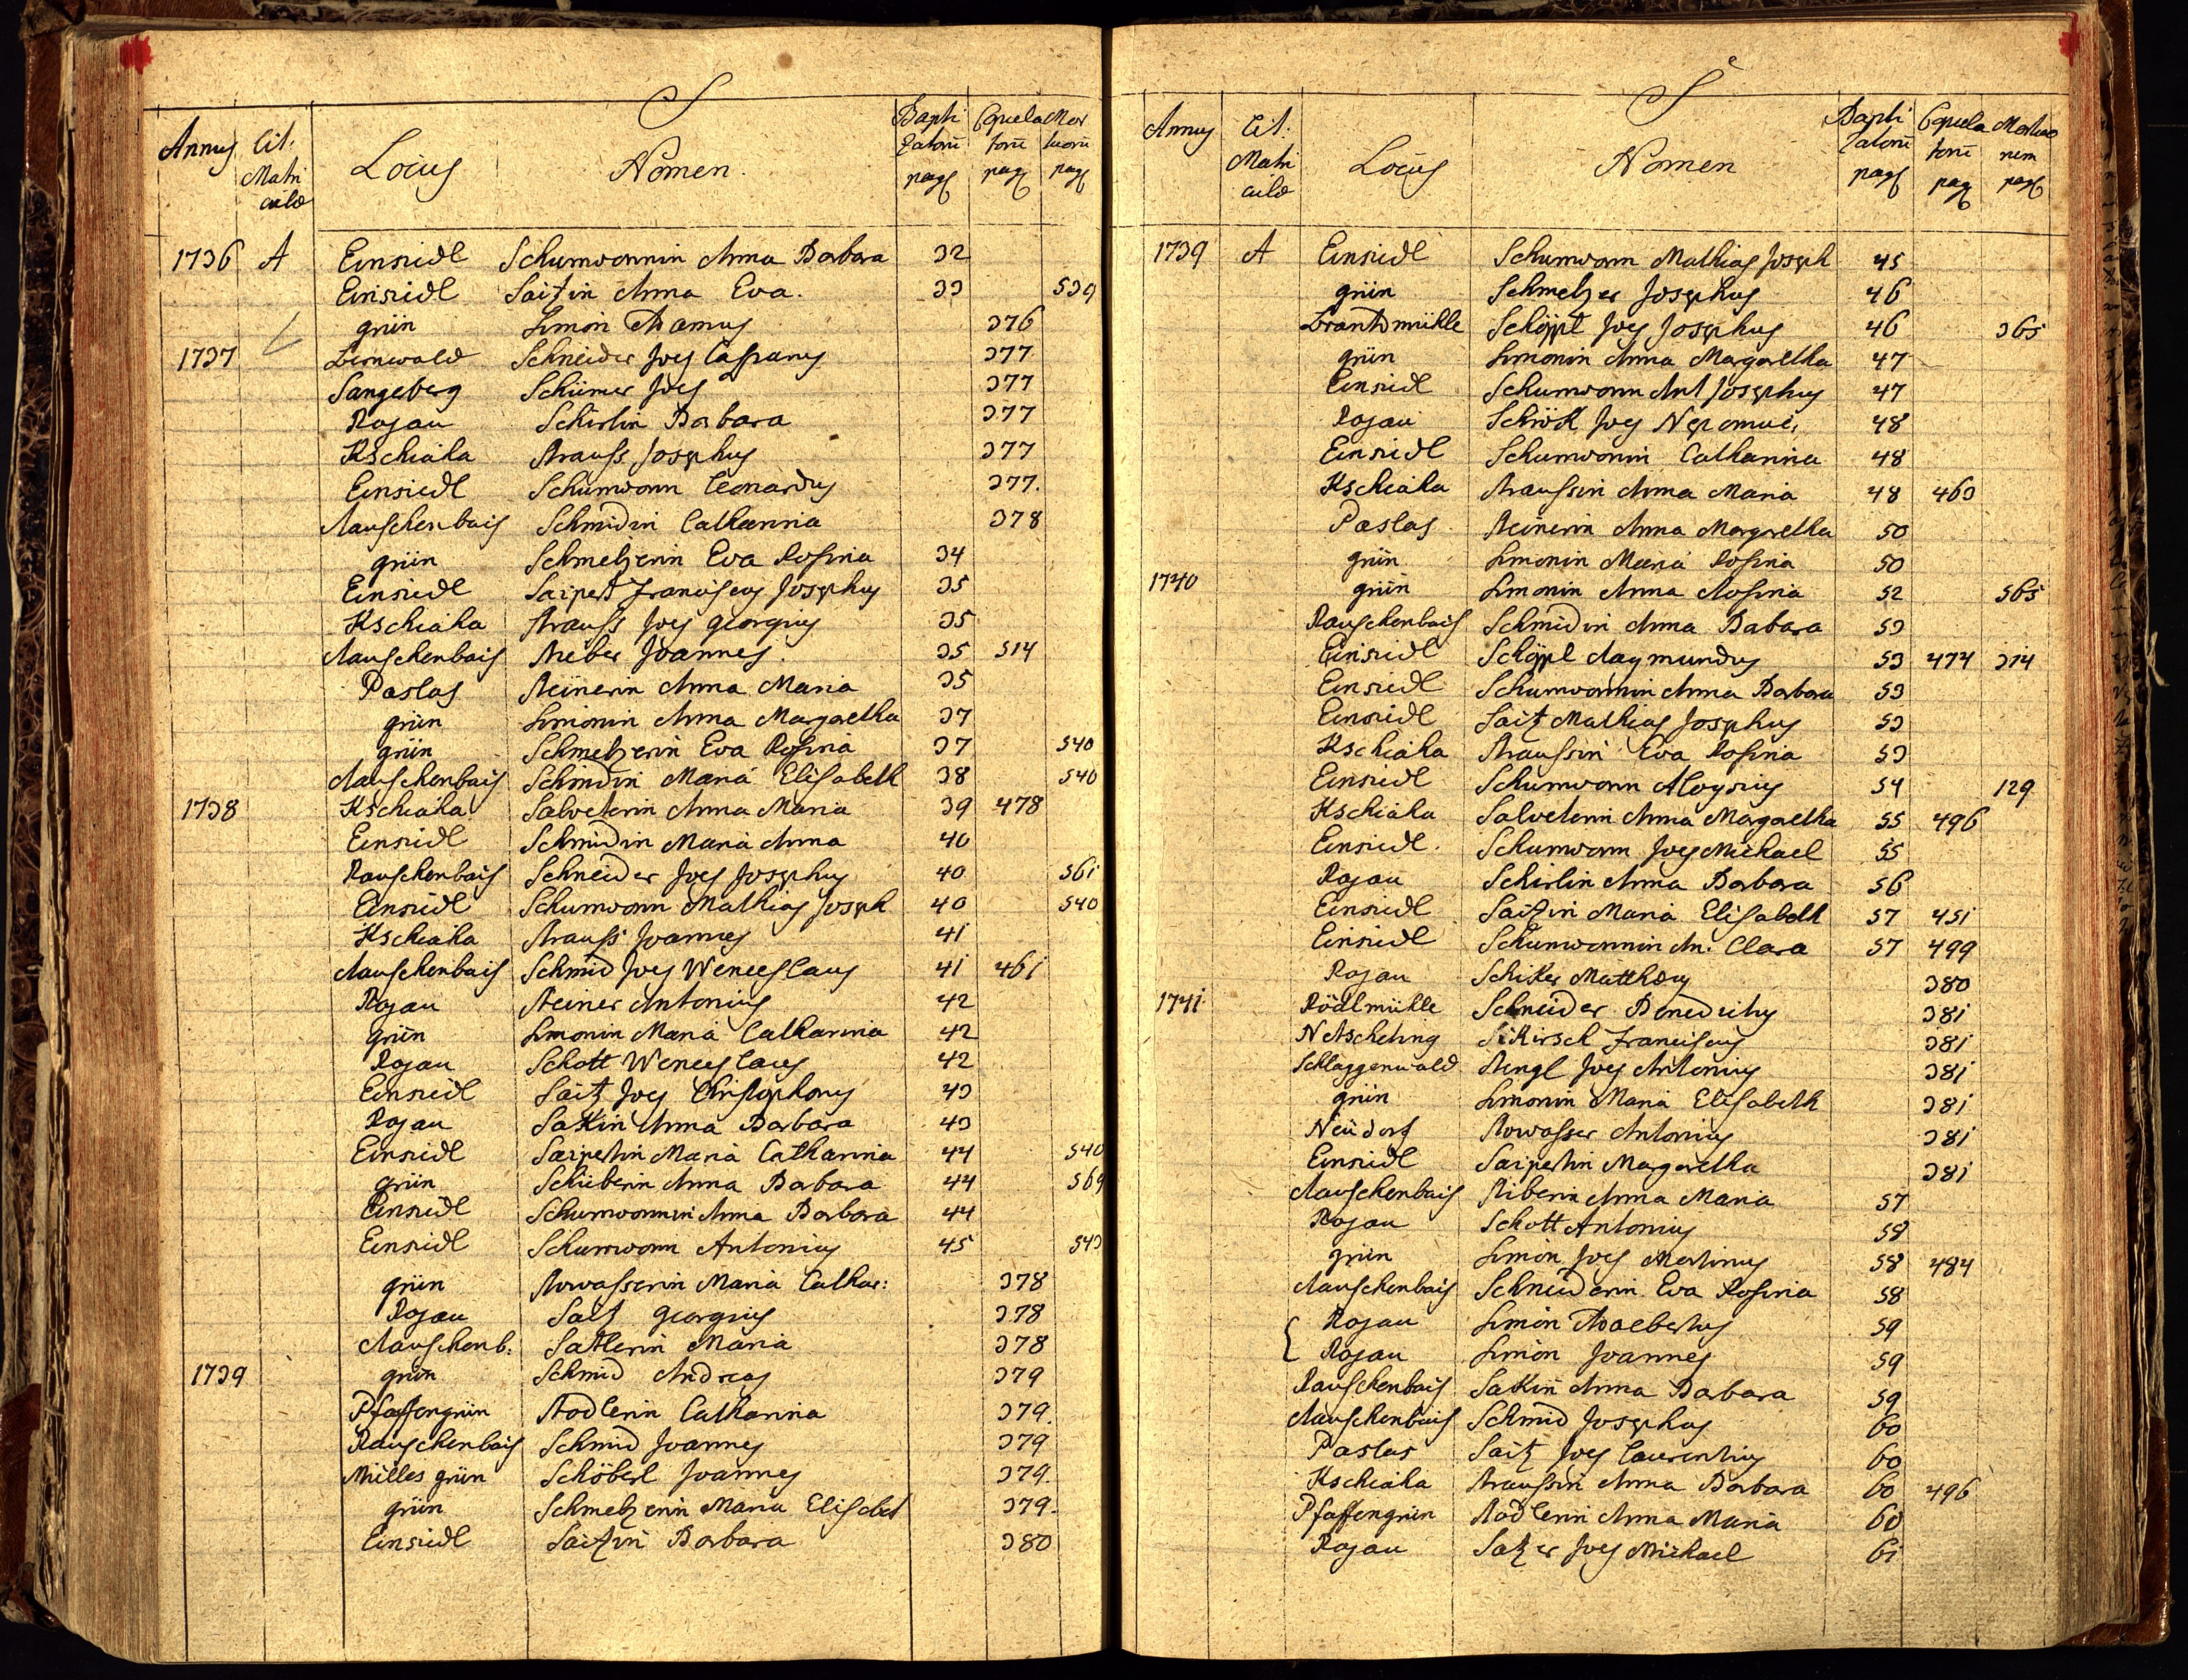 S
Annus Lit. Matri culæ Locus Nomen. Bapti zatorū pag Copula torū pag Mor tuorū pag
1736 A Einsiedl Schumwannin Anna Barbara 32
Einsiedl Saitzin Anna Eva. 33 539
grün Simon Adamus 376
1737 Schneider Joes Casparus 377
Sangeberg Schirmer Joes 377
Rojau Schirlin Barbara 377
Kschiaha Strauss Josephus 377
Einsiedl Schumwann Leonardus 377.
Rauschenbais Schmidin Catharina 378
grün Schmelzerin Eva Rosina 34
Einsiedl Saipert Franciscus Josephus 35
Kschiaha Strauss Joes georgius 35
Rauschenbais Stieber Joannes. 35 514
Paslas Steinerin Anna Maria 35
grün Simonin Anna Margaretha 37
grün Schmelzerin Eva Rosina 37 540
Rauschenbais Schmidin Maria Elisabeth 38 540
1738 Kschiaha Salveterin Anna Maria 39 478
Einsiedl Schmidin Maria Anna 40
Rauschenbais Schneider Joes Josephus 40 561
Einsiedl Schumwann Mathias Joseph 40 540
Kschiaha Strauss Joannes 41
Rauschenbais Schmid Joes Wenceslaus 41 461
Rojau Steiner Antonius 42
grün Simonin Maria Catharina 42
Rojau Schott Wenceslaus 42
Einsiedl Saitz Joes Christophorus 43
Rojau Sakin Anna Barbara 43
Einsiedl Saipertin Maria Catharina 44 540
grün Schieberin Anna Barbara 44 569
Einsiedl Schumwannin Anna Barbara 44
Einsiedl Schumwann Antonius 45 543
grün Rowasserin Maria Cathar: 378
Rojau Salz georgius 378
Rauschenb: Satlerin Maria 378
1739 grün Schmid Andreas 379
Pfaffengrün Stodlerin Catharina 379.
Rauschenbais Schmid Joannes 379
Milles grün Schöberl Joannes 379.
grün Schmelzerin Maria Elisabet 379.
Einsiedl Saitzin Barbara 380
S
Annus Lit. Matri culæ Locus Nomen Bapti zatorū pag Copula torū pag Mortuo rum pag
1739 A Einsiedl Schumwann Mathias Joseph 45
grün Schmelzer Josephus 46
Brantmühle Schöppl Joes Josephus 46 365
grün Simonin Anna Margaretha 47
Einsiedl Schumwann Ant Josephus 47
Rojau Schröck Joes Nepomuc. 48
Einsiedl Schumwanin Catharina 48
Kschiaha Straussin Anna Maria 48 463
Paslas Steinerin Anna Margaretha 50
grün Simonin Maria Rosina 50
1740 grün Simonin Anna Rosina 52 565
Rauschenbais Schmidin Anna Babara 53
Einsiedl Schöppl Raymundus 53 474 314
Einsiedl Schumwannin Anna Barbara 53
Einsiedl Saitz Mathias Josephus 53
Kschiaha Straussin Eva Rosina 53
Einsiedl Schumwann Aloysius 54 129
Kschiaha Salveterin Anna Margaretha 55 496
Einsiedl. Schumwann Joes Michael 55
Rojau Schirlin Anna Barbara 56
Einsiedl Saitzin Maria Elisabeth 57 451
Einsiedl Schumwannin An. Clara 57 499
Rojau Schiker Matthæus 380
1741 Rödlmühle Schneider Benedictus 381
Netscheting Franciscus 381
Schlaggenwald Stengl Joes Antonius 381
grün Simonin Maria Elisabeth 381
Neudorf Rowasser Antonius 381
Einsiedl Saipertin Margaretha 381
Rauschenbais Stiberin Anna Maria 57
Rojau Schott Antonius 58
grün Simon Joes Martinus 58 484
Rauschenbais Schneiderin Eva Rosina 58
Rojau Simon Adalbertus 59
Rojau Simon Joannes 59
Rauschenbais Sakin Anna Barbara 59
Rauschenbais Schmid Josephus 60
Paslas Saitz Joes Laurentius 60
Kschiaha Straussin Anna Barbara 60 496
Pfaffengrün Stodlerin Anna Maria 60
Rojau Satzer Joes Michael 61